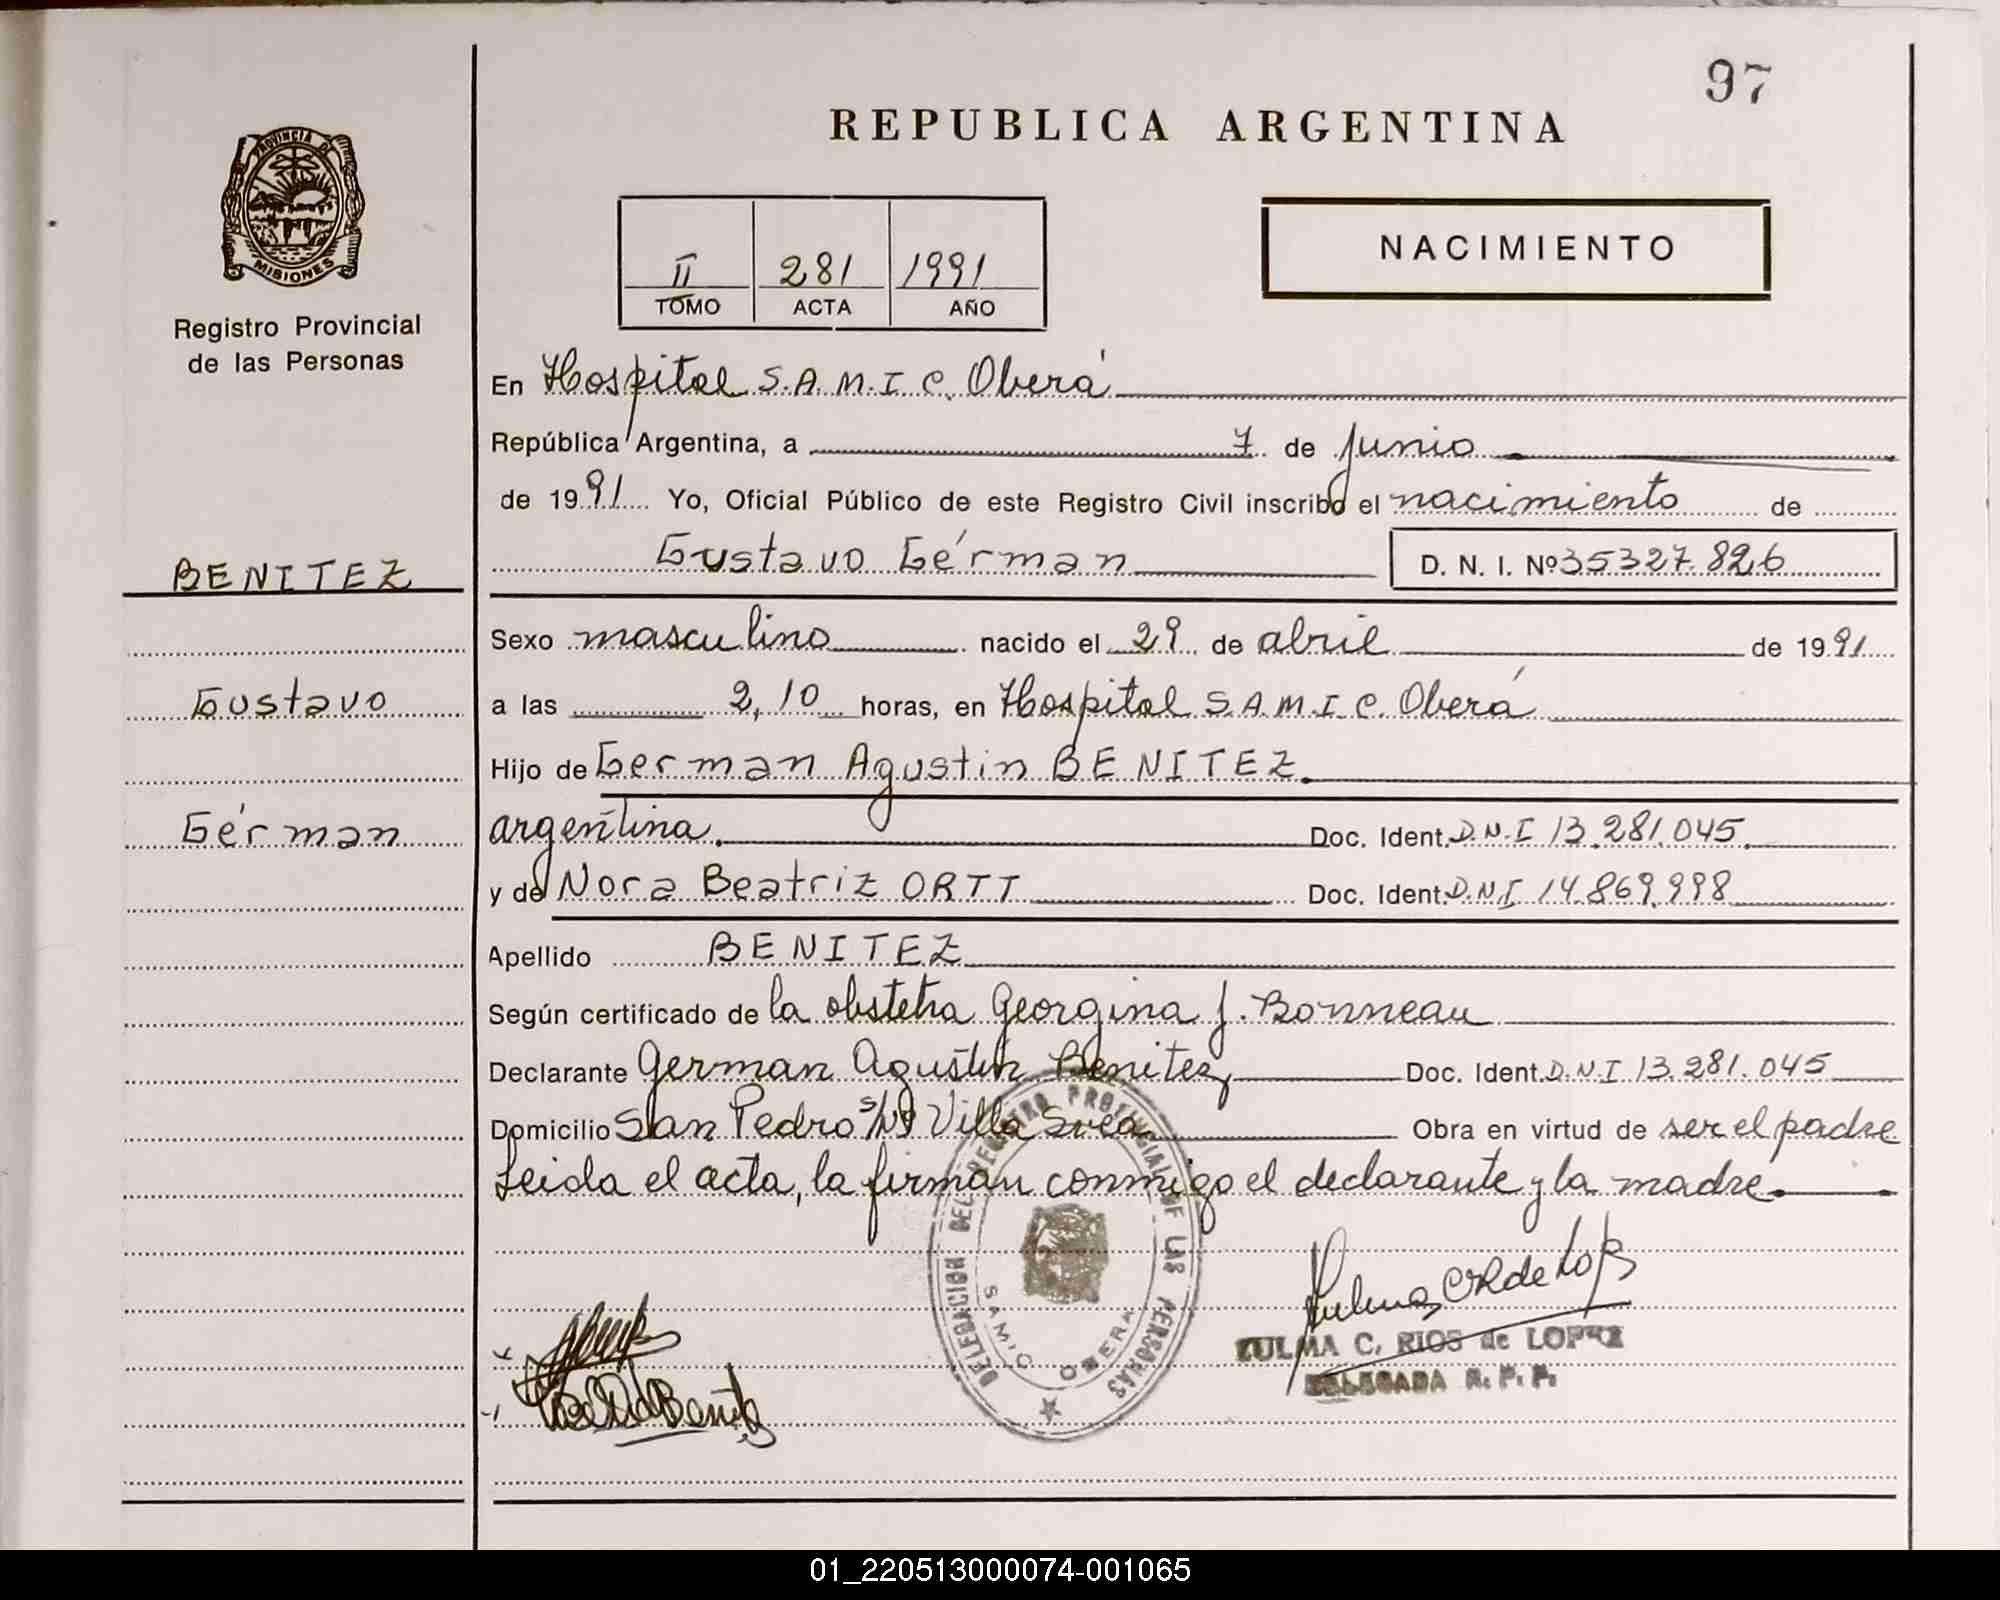 97
REPUBLICA ARGENTINA
PROVINCIA DE
MISIONES
Registro Provincial
de las Personas
II 281 1991
TOMO ACTA AÑO
NACIMIENTO
En Hospital S.A.M.I.C. Oberá
República Argentina, a 7 de junio
de 1991 Yo, Oficial Público de este Registro Civil inscribo el nacimiento de
Gustavo Gérman D. N. I. Nº 35327.826
BENITEZ
Gustavo
Gérman
Sexo masculino nacido el 29 de abril de 1991
a las 2,10 horas, en Hospital S.A.M.I.C. Oberá
Hijo de German Agustin BENITEZ
argentina. Doc. Ident. D.N.I 13.281.045
y de Nora Beatriz ORTT Doc. Ident. D.N.I 14.869.998
Apellido BENITEZ
Según certificado de la obstetra Georgina J. Bonneau
Declarante German Agustin Benitez, Doc. Ident. D.N.I 13.281.045
Domicilio San Pedro s/Nº Villa Svea Obra en virtud de ser el padre
Leida el acta, la firman conmigo el declarante y la madre.
DELEGACION DEL REGISTRO PROVINCIAL DE LAS PERSONAS
SAMIC OBERA
ZULMA C. RIOS de LOPEZ
DELEGADA R. P. P.
01_220513000074-001065